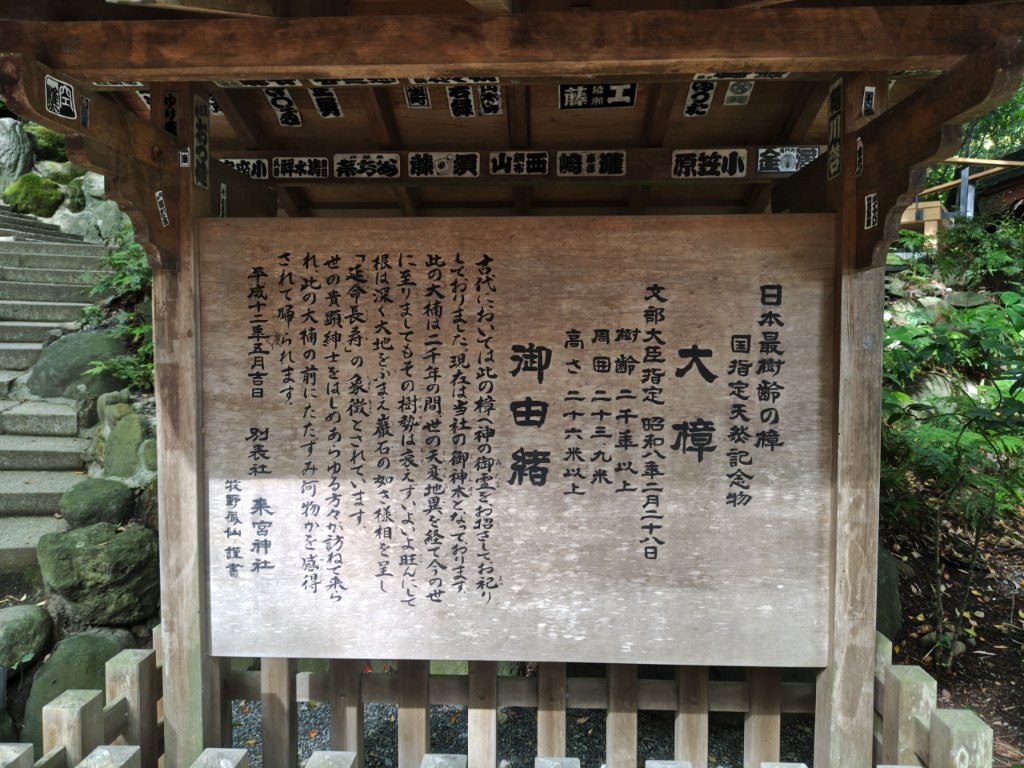 日本最樹齢の樟
国指定天然記念物
大樟
文部大臣指定 昭和八年二月二十八日
樹齢 二千年以上
周囲 二十三、九米
高さ 二十六米以上
御由緒
古代においては此の樟へ神の御霊をお招きしてお祀り
しておりました。現在は当社の御神木となっております。
此の大楠は二千年の間、世の天変地異を経て今の世
に至りましてもその樹勢は衰えずいよいよ旺んにして
根は深く大地をふまえ巌石の如き様相を呈し
「延命長寿」の象徴とされています。
世の貴顕紳士をはじめあらゆる方々が訪ねて来ら
れ、此の大楠の前にたたずみ何物かを感得
されて帰られます。
平成十二年五月吉日
別表社 来宮神社
牧野 仙 謹書
小笠原
金
西山
須藤
清水祥
工藤